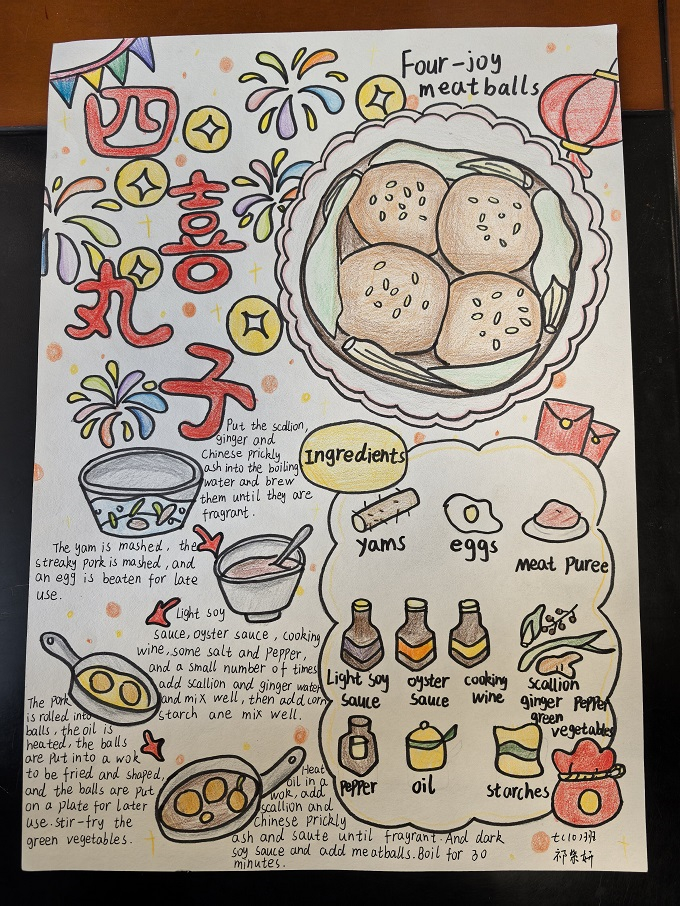 Four-joy
meatballs
四
喜
丸
子
Put the scallion,
ginger and
Chinese prickly
ash into the boiling
water and brew
them until they are
fragrant.
The yam is mashed, the
streaky pork is mashed, and
an egg is beaten for late
use.
Light soy
sauce, oyster sauce, cooking
wine, some salt and pepper,
and a small number of times
add scallion and ginger water
and mix well, then add corn
starch ane mix well.
The pork
is rolled into
balls, the oil is
heated, the balls
are put into a wok
to be fried and shaped,
and the balls are put
on a plate for later
use. Stir-fry the
green vegetables.
Heat
oil in a
wok, add
scallion and
Chinese prickly
ash and saute until fragrant. And dark
soy sauce and add meatballs. Boil for 30
minutes.
Ingredients
yams
eggs
Meat Puree
Light Soy
Sauce
oyster
Sauce
cooking
wine
Scallion
ginger Pepper
green
vegetables
Pepper
oil
starches